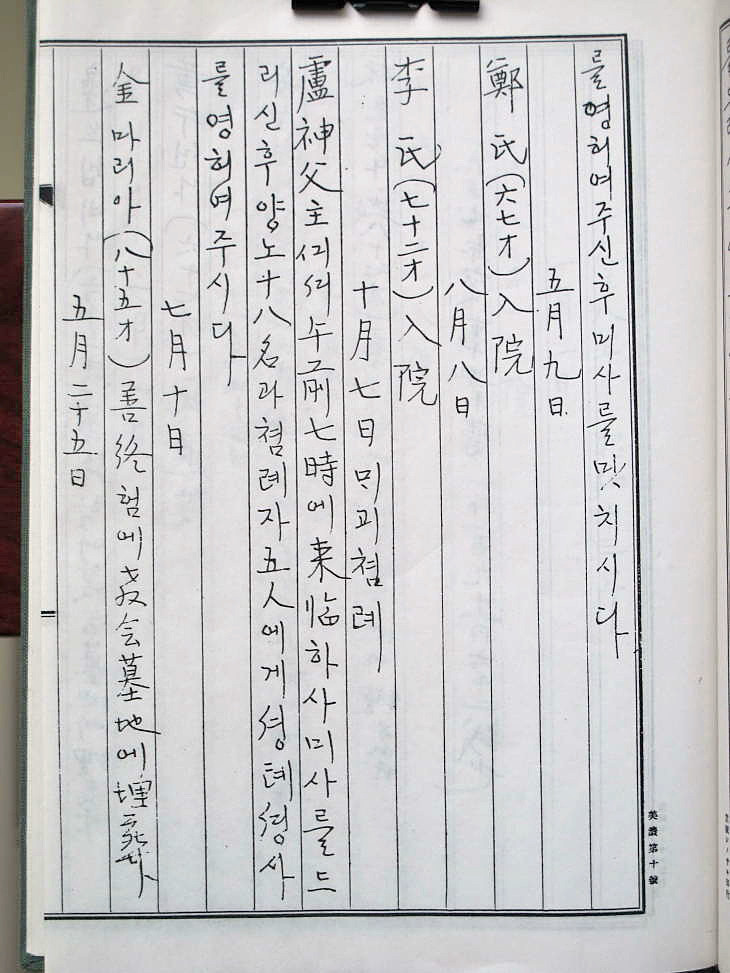 를영허여주신후미사를맛치시다
五月九日
鄭氏(六七才)入院
八月八日
李氏(七十二才)入院
十月七日믹괴쳠례
盧神父主끠셔午前七時에来臨하사미사를드
리신후양노十八名과쳠례자五人에게셩톄셩사
를영허여주시다
七月十日
金마리아(八十五才)善終험에敎会墓地에埋葬
五月二十五日
美濃第十號